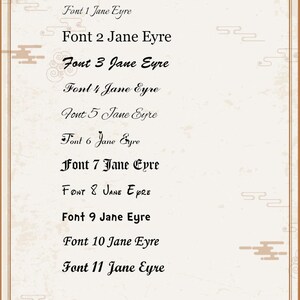 Font 1 Jane Eyre
Font 2 Jane Eyre
Font 3 Jane Eyre
Font 4 Jane Eyre
Font 5 Jane Eyre
Font 6 Jane Eyre
Font 7 Jane Eyre
Font 8 Jane Eyre
Font 9 Jane Eyre
Font 10 Jane Eyre
Font 11 Jane Eyre